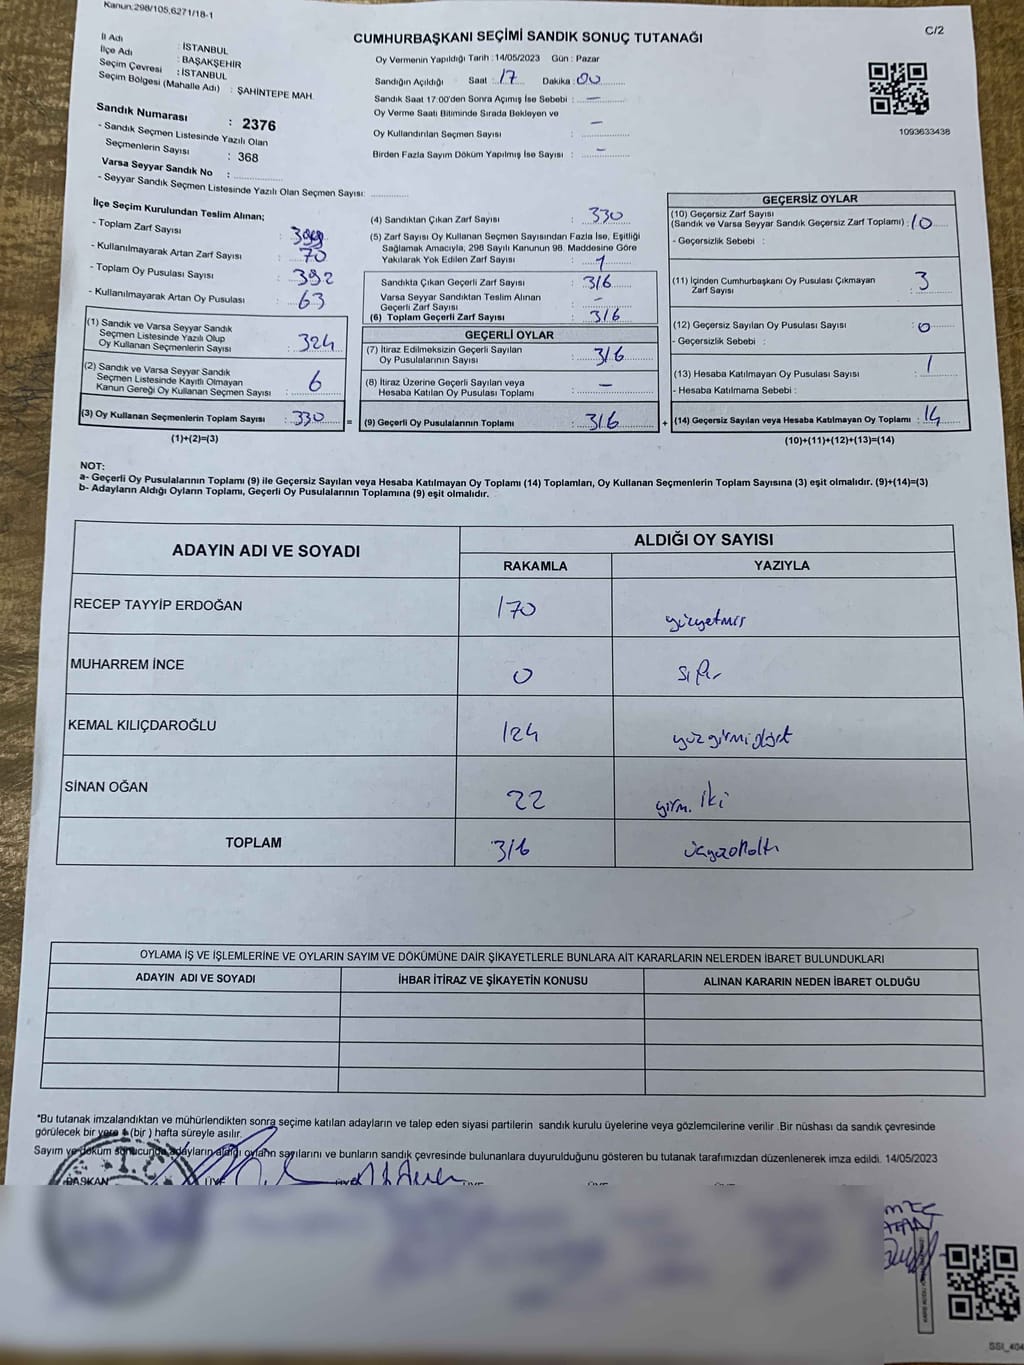 Kanun:298/105,6271/18-1
C/2
CUMHURBAŞKANI SEÇİMİ SANDIK SONUÇ TUTANAĞI
İl Adı : İSTANBUL
İlçe Adı : BAŞAKŞEHİR
Seçim Çevresi : İSTANBUL
Seçim Bölgesi (Mahalle Adı) : ŞAHİNTEPE MAH.
Sandık Numarası : 2376
- Sandık Seçmen Listesinde Yazılı Olan
Seçmenlerin Sayısı : 368
Varsa Seyyar Sandık No :
- Seyyar Sandık Seçmen Listesinde Yazılı Olan Seçmen Sayısı:
Oy Vermenin Yapıldığı Tarih : 14/05/2023 Gün : Pazar
Sandığın Açıldığı Saat : 17 Dakika : 00
Sandık Saat 17:00'den Sonra Açımış İse Sebebi : —
Oy Verme Saati Bitiminde Sırada Bekleyen ve
Oy Kullandırılan Seçmen Sayısı : —
Birden Fazla Sayım Döküm Yapılmış İse Sayısı : —
1093633438
İlçe Seçim Kurulundan Teslim Alınan;
- Toplam Zarf Sayısı :
- Kullanılmayarak Artan Zarf Sayısı : 70
- Toplam Oy Pusulası Sayısı : 392
- Kullanılmayarak Artan Oy Pusulası : 63
(1) Sandık ve Varsa Seyyar Sandık
Seçmen Listesinde Yazılı Olup
Oy Kullanan Seçmenlerin Sayısı : 324
(2) Sandık ve Varsa Seyyar Sandık
Seçmen Listesinde Kayıtlı Olmayan
Kanun Gereği Oy Kullanan Seçmen Sayısı : 6
(3) Oy Kullanan Seçmenlerin Toplam Sayısı : 330
(1)+(2)=(3)
(4) Sandıktan Çıkan Zarf Sayısı : 330
(5) Zarf Sayısı Oy Kullanan Seçmen Sayısından Fazla İse, Eşitliği
Sağlamak Amacıyla; 298 Sayılı Kanunun 98. Maddesine Göre
Yakılarak Yok Edilen Zarf Sayısı : 1
Sandıkta Çıkan Geçerli Zarf Sayısı : 316
Varsa Seyyar Sandıktan Teslim Alınan
Geçerli Zarf Sayısı : —
(6) Toplam Geçerli Zarf Sayısı : 316
GEÇERLİ OYLAR
(7) İtiraz Edilmeksizin Geçerli Sayılan
Oy Pusulalarının Sayısı : 316
(8) İtiraz Üzerine Geçerli Sayılan veya
Hesaba Katılan Oy Pusulası Toplamı : —
= (9) Geçerli Oy Pusulalarının Toplamı : 316
GEÇERSİZ OYLAR
(10) Geçersiz Zarf Sayısı
(Sandık ve Varsa Seyyar Sandık Geçersiz Zarf Toplamı) : 10
- Geçersizlik Sebebi :
(11) İçinden Cumhurbaşkanı Oy Pusulası Çıkmayan
Zarf Sayısı : 3
(12) Geçersiz Sayılan Oy Pusulası Sayısı : 0
- Geçersizlik Sebebi :
(13) Hesaba Katılmayan Oy Pusulası Sayısı : 1
- Hesaba Katılmama Sebebi :
+ (14) Geçersiz Sayılan veya Hesaba Katılmayan Oy Toplamı : 14
(10)+(11)+(12)+(13)=(14)
NOT:
a- Geçerli Oy Pusulalarının Toplamı (9) ile Geçersiz Sayılan veya Hesaba Katılmayan Oy Toplamı (14) Toplamları, Oy Kullanan Seçmenlerin Toplam Sayısına (3) eşit olmalıdır. (9)+(14)=(3)
b- Adayların Aldığı Oyların Toplamı, Geçerli Oy Pusulalarının Toplamına (9) eşit olmalıdır.
ADAYIN ADI VE SOYADI
ALDIĞI OY SAYISI
RAKAMLA YAZIYLA
RECEP TAYYİP ERDOĞAN 170 yüzyetmiş
MUHARREM İNCE 0 sıfır
KEMAL KILIÇDAROĞLU 124 yüz yirmi dört
SİNAN OĞAN 22 yirmi iki
TOPLAM 316 üçyüzonaltı
OYLAMA İŞ VE İŞLEMLERİNE VE OYLARIN SAYIM VE DÖKÜMÜNE DAİR ŞİKAYETLERLE BUNLARA AİT KARARLARIN NELERDEN İBARET BULUNDUKLARI
ADAYIN ADI VE SOYADI İHBAR İTİRAZ VE ŞİKAYETİN KONUSU ALINAN KARARIN NEDEN İBARET OLDUĞU
*Bu tutanak imzalandıktan ve mühürlendikten sonra seçime katılan adayların ve talep eden siyasi partilerin sandık kurulu üyelerine veya gözlemcilerine verilir .Bir nüshası da sandık çevresinde
görülecek bir yere 1 (bir ) hafta süreyle asılır.
Sayım ve döküm sonucunda adayların aldığı oyların sayılarını ve bunların sandık çevresinde bulunanlara duyurulduğunu gösteren bu tutanak tarafımızdan düzenlenerek imza edildi. 14/05/2023
BAŞKAN ÜYE ÜYE ÜYE ÜYE ÜYE
T.C.